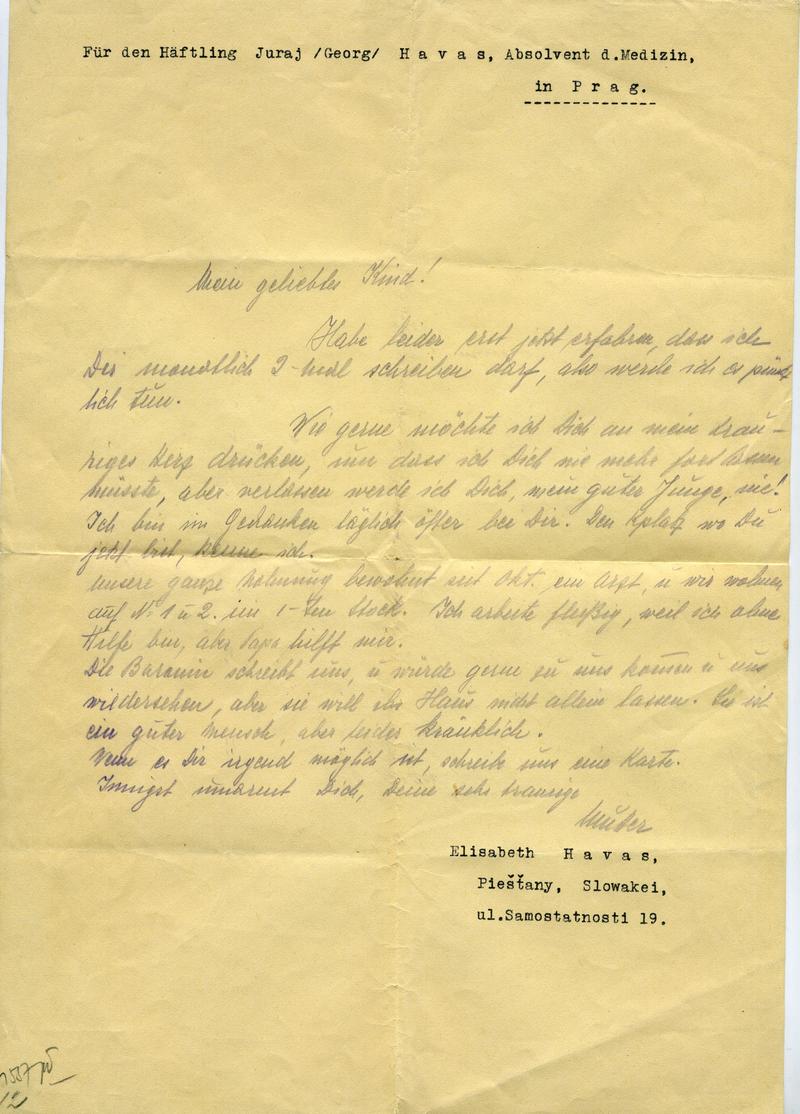 Für den Häftling Juraj /Georg/ H a v a s, Absolvent d.Medizin,
in P r a g.
Mein geliebtes Kind!
Habe leider erst jetzt erfahren, dass ich
Dir monatlich 2-mal schreiben darf, also werde ich es pünkt
lich tun.
Wie gerne möchte ich Dich an mein trau-
riges Herz drücken, um dass ich Dich nie mehr fort lassen
müsste, aber verlassen werde ich Dich, mein guter Junge, nie!
Ich bin in Gedanken täglich öfter bei Dir. Den Platz wo Du
jetzt bist, kenne ich.
Unsere ganze Wohnung bewohnt seit Okt. ein Arzt, u wir wohnen
auf No 1 u 2. im 1-ten Stock. Ich arbeite fleißig, weil ich ohne
Hilfe bin, aber Papa hilft mir.
Die Baronin schreibt uns, u würde gerne zu uns kommen u uns
wiedersehen, aber sie will ihr Haus nicht allein lassen. Sie ist
ein guter Mensch, aber leider kränklich.
Wenn es Dir irgend möglich ist, schreibe uns eine Karte.
Innigst umarmt Dich, Deine sehr traurige
Mutter
Elisabeth H a v a s,
Piešťany, Slowakei,
ul.Samostatnosti 19.
12